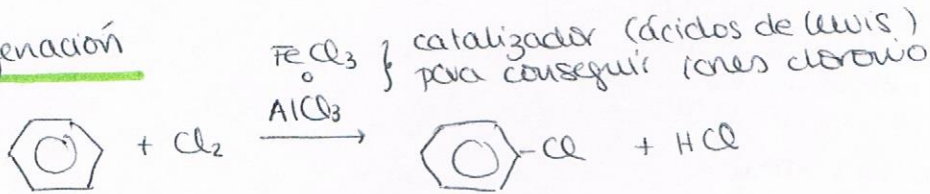 enación
FeCl3 } catalizador (ácidos de Lewis)
o para conseguir iones cloronio
AlCl3
+ Cl2 → -Cl + HCl